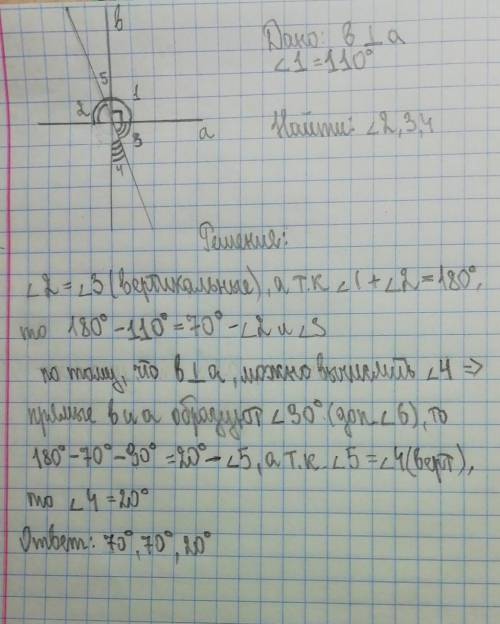 в
Дано: в⊥а
∠1=110°
5
1
2
а
3
4
Найти: ∠2,3,4
Решение:
∠2=∠3(вертикальные), а т.к ∠1+∠2=180°,
то 180°-110°=70°-∠2 и ∠3
по тому, что в⊥а, можно вычислить ∠4 =>
прямые в и а образуют ∠90° (доп. ∠6), то
180°-70°-90°=20°-∠5, а т.к. ∠5=∠4(верт),
то ∠4=20°
Ответ: 70°, 70°, 20°